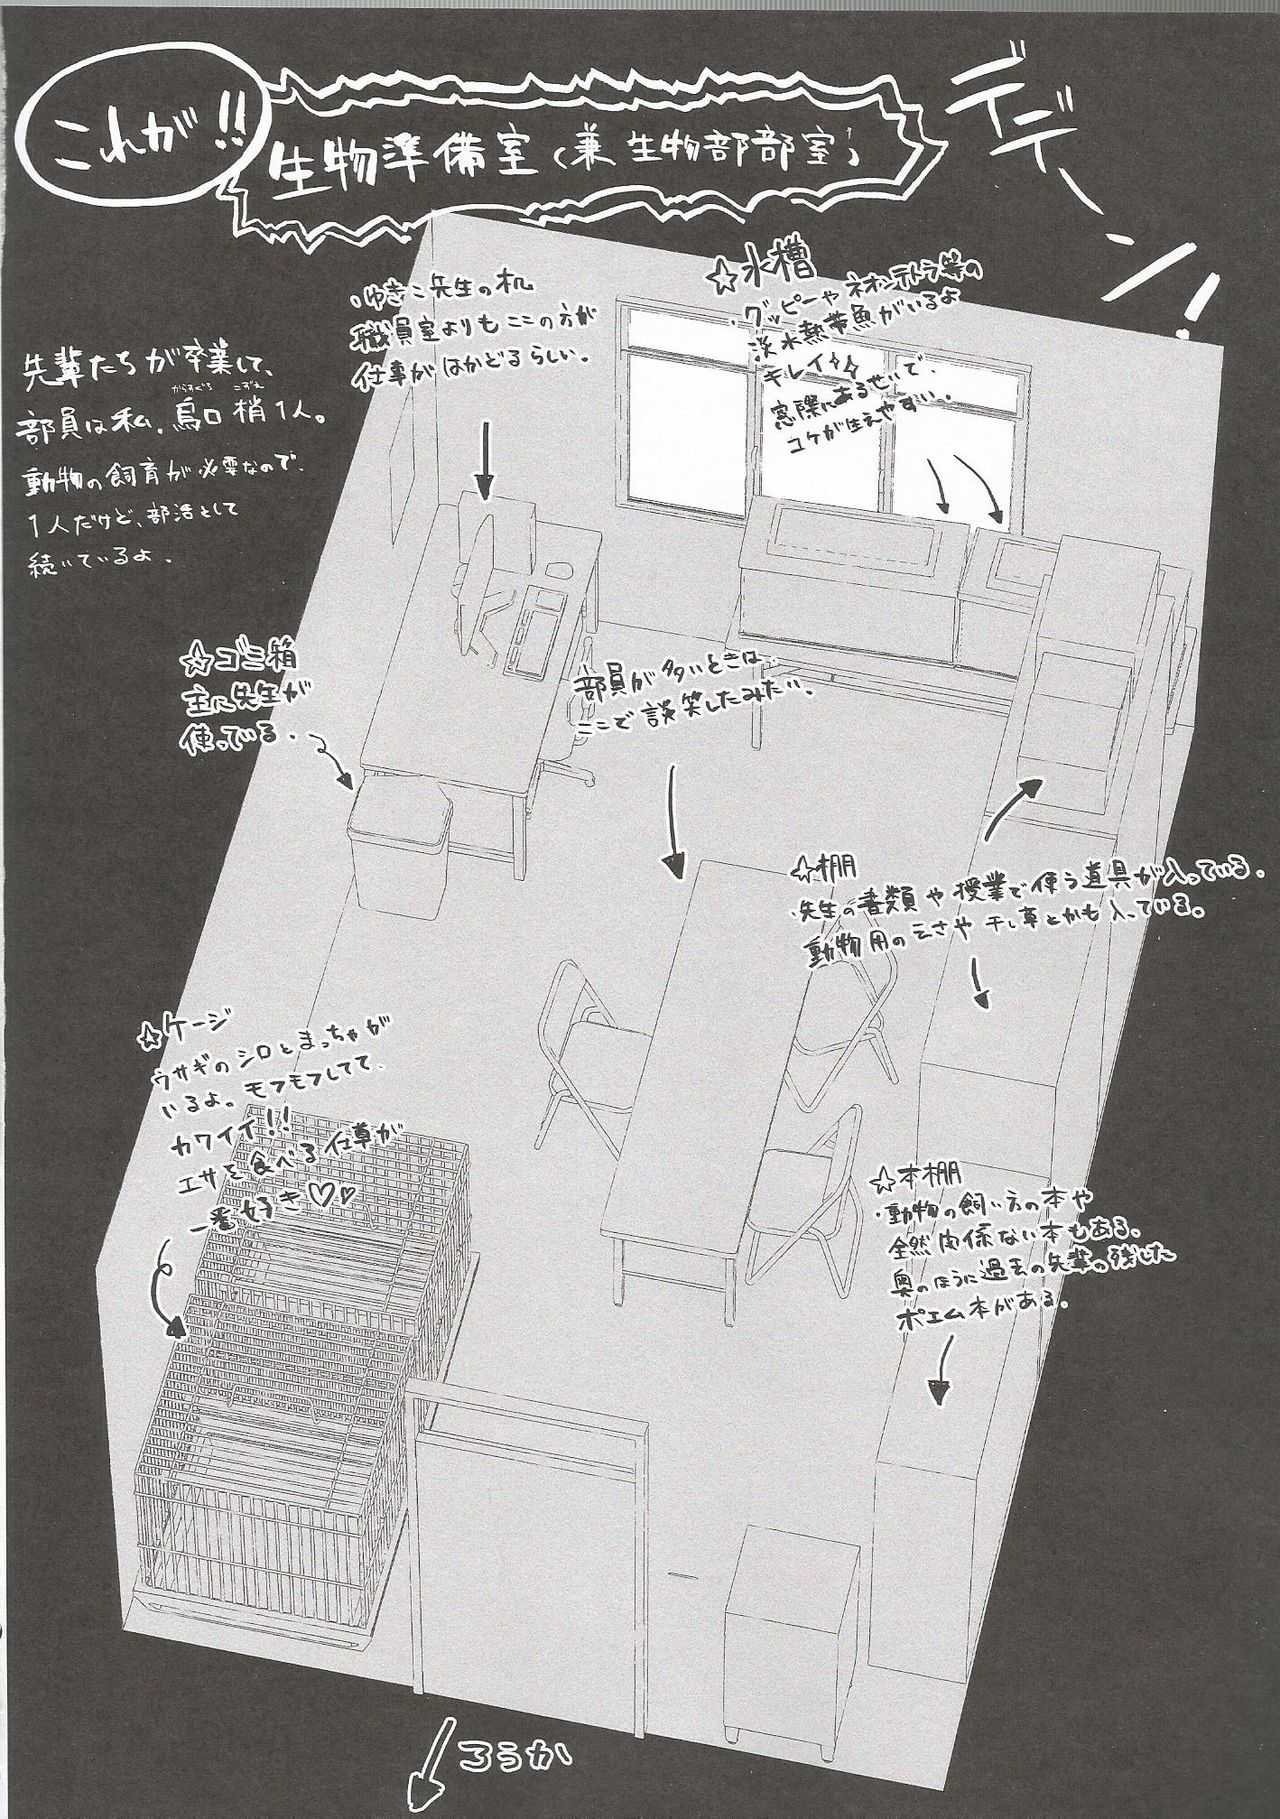 これが!!
生物準備室(兼生物部部室)
デデーン!
先輩たちが卒業して、
からすぐち こずえ
部員は私、烏口 梢1人。
動物の飼育が必要なので、
1人だけど、部活として
続いているよ.
・ゆきこ先生の机
職員室よりもここの方が
仕事がはかどるらしい。
☆水槽
・グッピーやネオンテトラ等の
淡水熱帯魚がいるよ
キレイ
窓際にあるせいで、
コケが生えやすい.
☆ゴミ箱
主に先生が
使っている.
部員が多いときは
ここで談笑したみたい.
☆棚
・先生の書類や授業で使う道具が入っている.
動物用のえさや干し草とかも入っている.
☆ケージ
ウサギのシロとまっちゃが
いるよ. モフモフしてて
カワイイ!!
エサを食べる仕草が
一番好き♡♡
☆本棚
・動物の飼い方の本や
全然関係ない本もある.
奥のほうに過去の先輩の残した
ポエム本がある.
ろうか